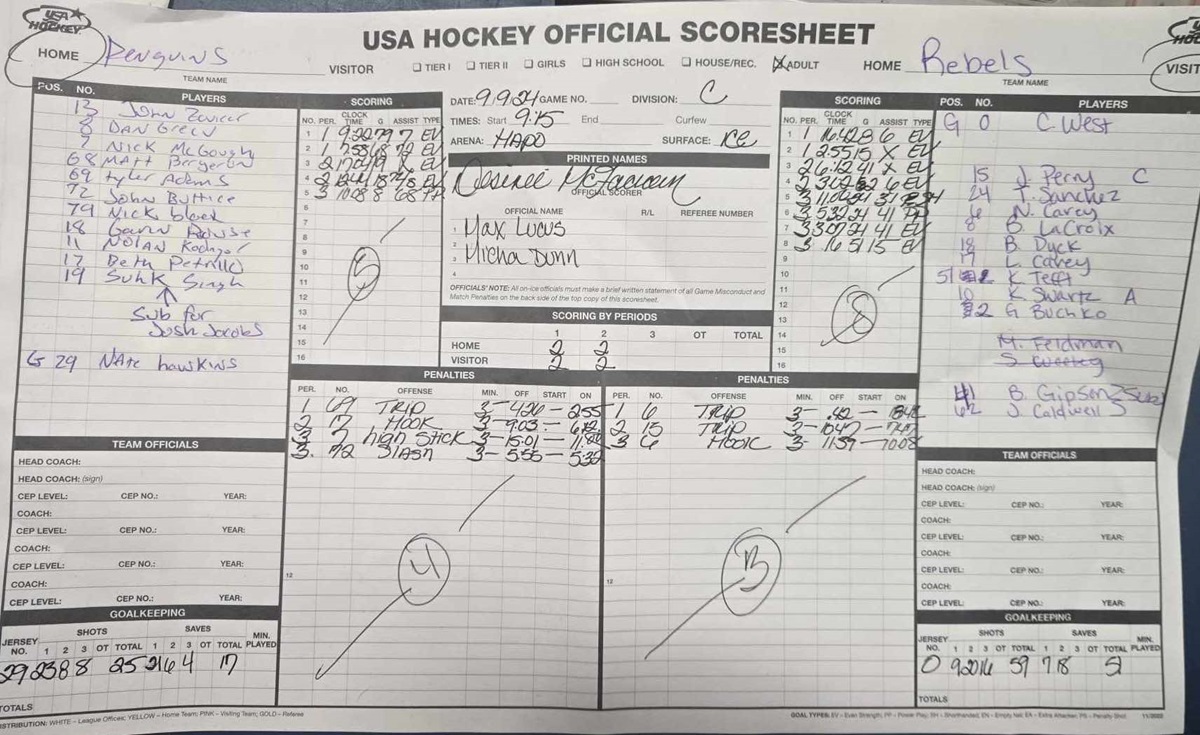 USA HOCKEY
USA HOCKEY OFFICIAL SCORESHEET
HOME Penguins VISITOR
TEAM NAME
☐ TIER I ☐ TIER II ☐ GIRLS ☐ HIGH SCHOOL ☐ HOUSE/REC. ☒ ADULT
HOME Rebels VISIT
TEAM NAME
POS. NO. PLAYERS
13
DAN Green
7 Nick McGough
68 Matt Bergeron
69 Tyler Adams
72 John Buttice
79 Nick
18 Gavin
11 NOLAN
17 Beth Petrillo
19 SUKK Singh
↑
Sub for
Josh Jacobs
G 29 NAte hawkins
SCORING
NO. PER. CLOCK TIME G ASSIST TYPE
1 1 9:22 79 7 EV
2 1 7:58 68 72 EV
3 2 X EV
4 2 EV
5 3 10:08 8 68
6
7
8
9
10
11
12
13
14
15
16
5
DATE: 9.9.24 GAME NO. DIVISION: C
TIMES: Start 9:15 End Curfew
ARENA: HAPO SURFACE: ICE
PRINTED NAMES
Desiree
OFFICIAL SCORER
OFFICIAL NAME R/L REFEREE NUMBER
1 Max Lucus
2
3 Micha Dunn
4
OFFICIALS' NOTE: All on-ice officials must make a brief written statement of all Game Misconduct and
Match Penalties on the back side of the top copy of this scoresheet.
SCORING BY PERIODS
1 2 3 OT TOTAL
HOME 2 2
VISITOR 2 2
SCORING
NO. PER. CLOCK TIME G ASSIST TYPE
1 1 16:42 8 6 EV
2 1 2:55 15 X EV
3 2 6:12 41 X EV
4 2 3:02 6 EV
5 3 11:04 24
6 3 5:32 24 41 PP
7 3 3:07 24 41 EV
8 3 1:65 15 EV
10
11
12
13
14
15
16
8
POS. NO. PLAYERS
G 0 C. West
15 J. Perry C
24 T. Sanchez
6 N. Carey
8 B. LaCroix
18 B. Dyck
17 L. Carey
51 K Tefft
10 K Swartz A
2 G Buchko
M. Feldman
41 B. Gipson Sub
62 J. Caldwell
PENALTIES
PER. NO. OFFENSE MIN. OFF START ON
1 69 TRIP 3 - 4:26 - 2:55
2 17 HOOK 3 - 9:03 -
3 7 high Stick 3 - 15:01 -
3. 72 Slash 3 - 5:55 - 5:32
12
4
PENALTIES
PER. NO. OFFENSE MIN. OFF START ON
1 6 TRIP 3 - :42 -
2 15 TRIP - 10:47 - 7:47
3 6 HOOK 3 - 11:39 - 10:08
12
3
TEAM OFFICIALS
HEAD COACH:
HEAD COACH: (sign)
CEP LEVEL: CEP NO.: YEAR:
COACH:
CEP LEVEL: CEP NO.: YEAR:
COACH:
CEP LEVEL: CEP NO.: YEAR:
COACH:
CEP LEVEL: CEP NO.: YEAR:
GOALKEEPING
JERSEY NO. SHOTS 1 2 3 OT TOTAL SAVES 1 2 3 OT TOTAL MIN. PLAYED
29 2 3 8 8 25 2 16 4 17
TOTALS
TEAM OFFICIALS
HEAD COACH:
HEAD COACH: (sign)
CEP LEVEL: CEP NO.: YEAR:
COACH:
CEP LEVEL: CEP NO.: YEAR:
COACH:
CEP LEVEL: CEP NO.: YEAR:
COACH:
CEP LEVEL: CEP NO.: YEAR:
GOALKEEPING
JERSEY NO. SHOTS 1 2 3 OT TOTAL SAVES 1 2 3 OT TOTAL MIN. PLAYED
0 9 20 16 59 7 18 51
TOTALS
DISTRIBUTION: WHITE – League Offices; YELLOW – Home Team; PINK – Visiting Team; GOLD – Referee
GOAL TYPES: EV – Even Strength; PP – Power Play; SH – Shorthanded; EN – Empty Net; EA – Extra Attacker; PS – Penalty Shot 11/2022